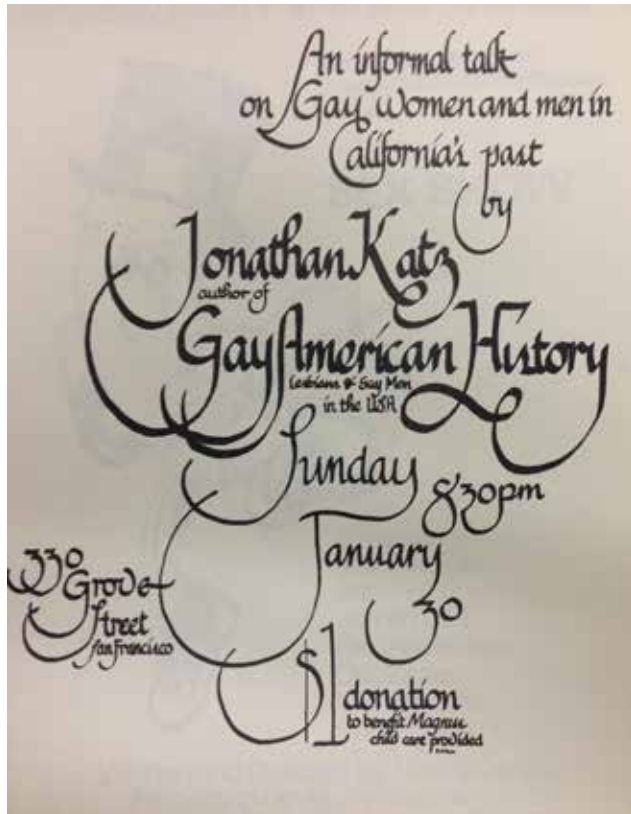 An informal talk
on Gay Women and men in
California's past
by
Jonathan Katz
author of
Gay American History
Lesbians & Gay Men
in the USA
Sunday
8:30pm
January
30
330
Grove
Street
San Francisco
$1 donation
to benefit Magnus
child care provided